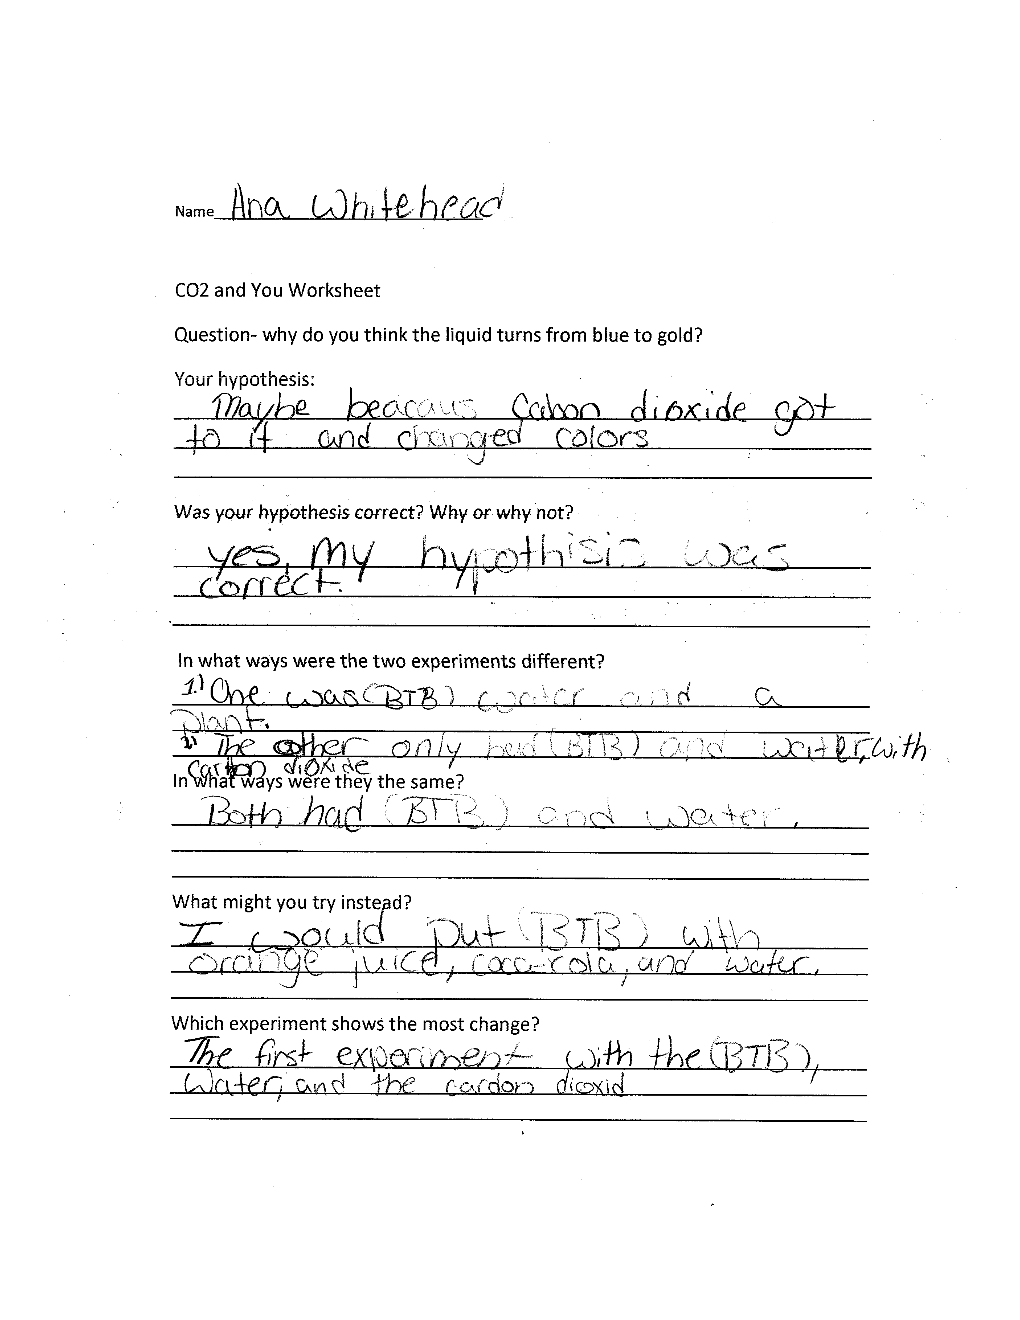 Name Ana Whitehead
CO2 and You Worksheet
Question- why do you think the liquid turns from blue to gold?
Your hypothesis:
Maybe beacaus Cabon dioxide got
to it and changed colors
Was your hypothesis correct? Why or why not?
yes, my hypothisis was
correct.
In what ways were the two experiments different?
1.) One was (BTB) water and a
plant.
The other only had (BTB) and water, with
carbon dioxide
In what ways were they the same?
Both had (BTB) and water.
What might you try instead?
I would put (BTB) with
orange juice, coca-cola, and water.
Which experiment shows the most change?
The first experiment with the (BTB),
Water, and the cardon dioxid